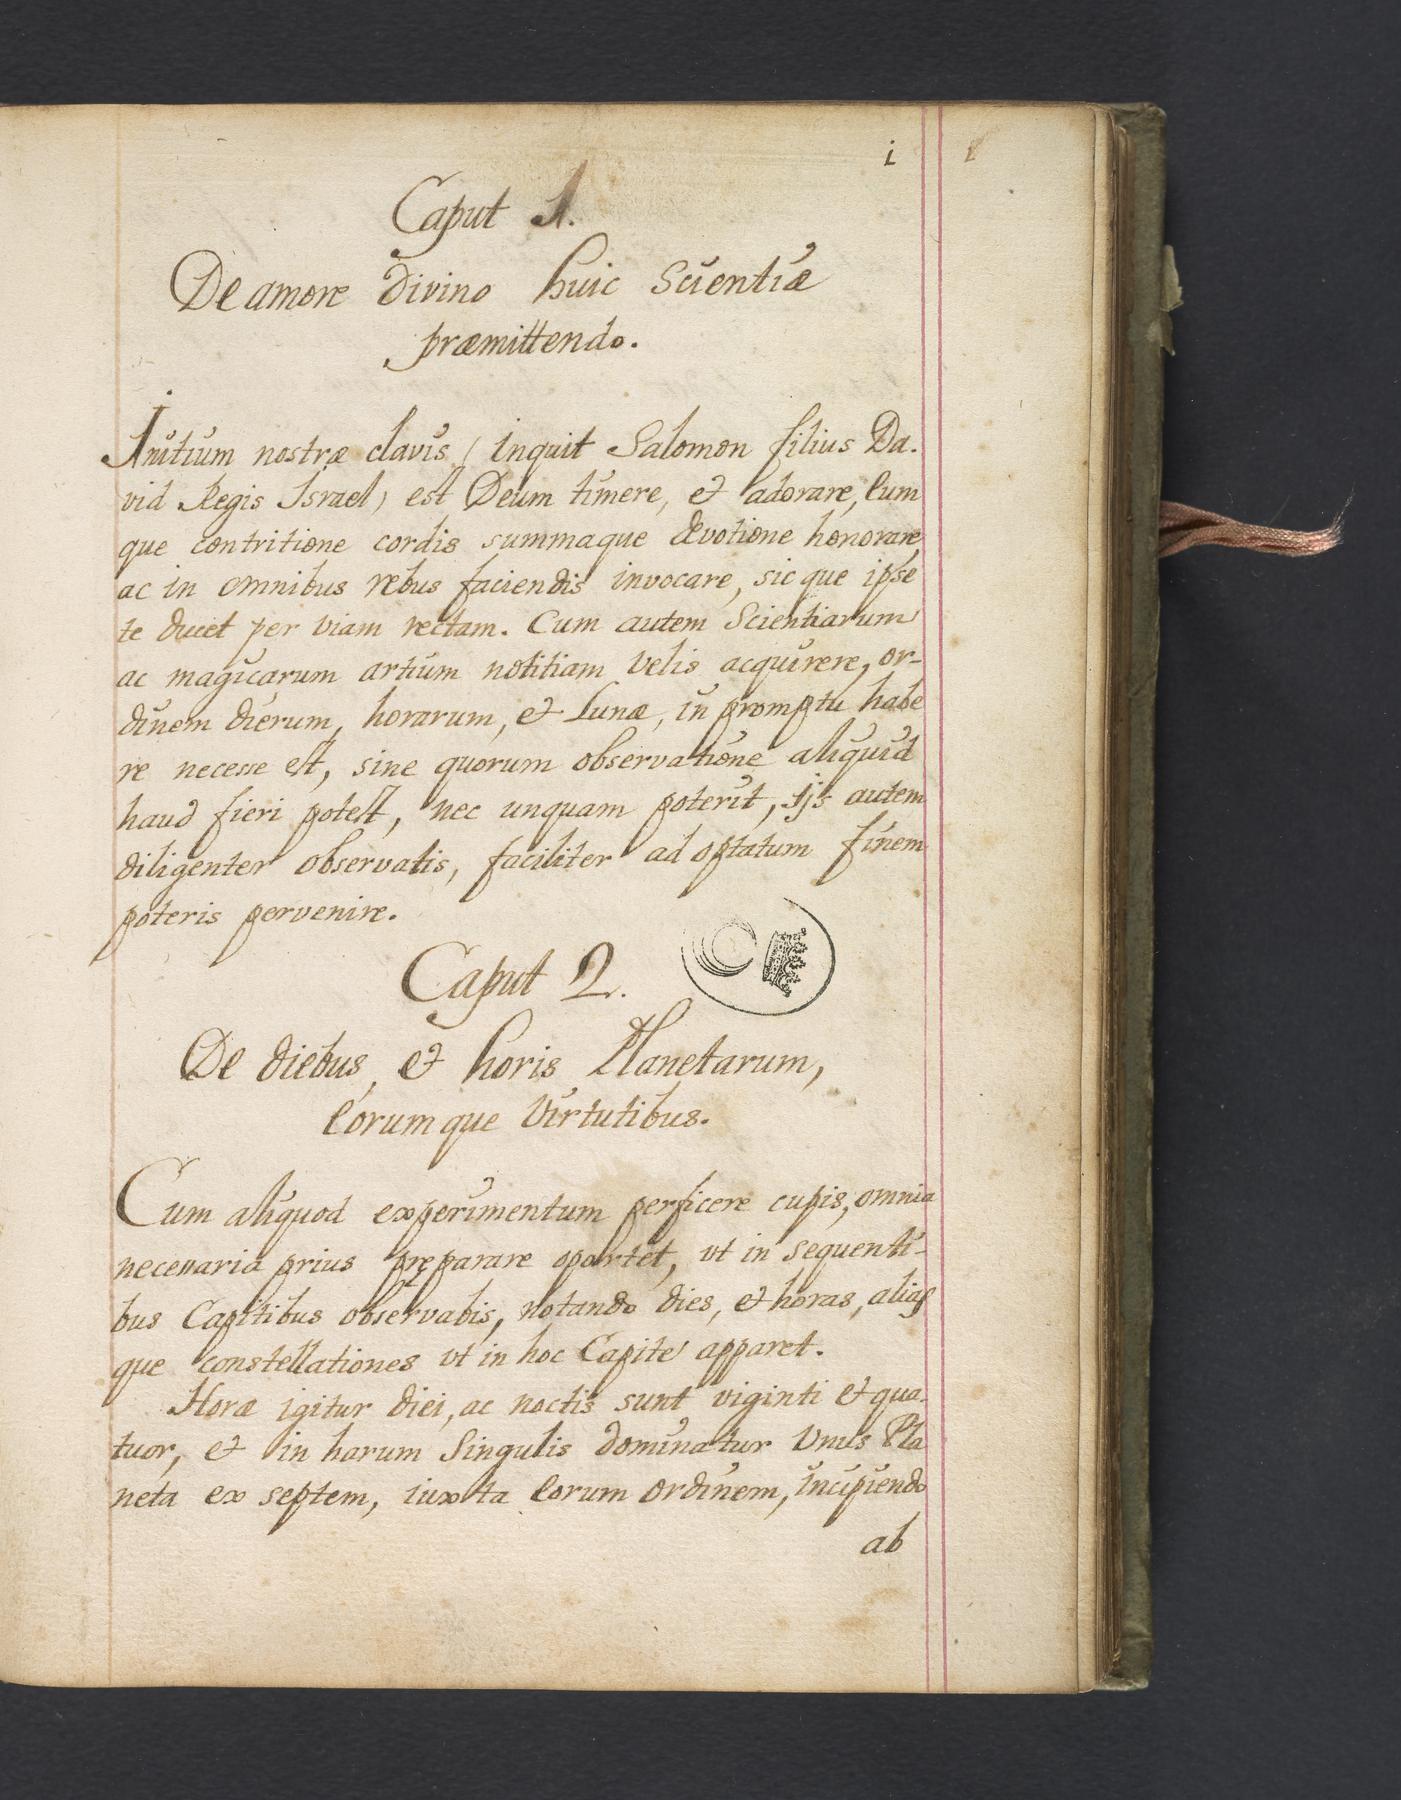 i
Caput 1.
De amore divino huic Scientiæ
præmittendo.
Initium nostræ clavis (inquit Salomon filius Da.
vid Regis Israel) est Deum timere, et adorare, Eum
que contritione cordis summaque devotione honorare,
ac in omnibus rebus faciendis invocare, sic que ipse
te ducet per viam rectam. Cum autem Scientiarum
ac magicarum artium notitiam velis acquirere, or-
dinem dierum, horarum, et Lunæ, in promptu habe
re necesse est, sine quorum observatione aliquid
haud fieri potest, nec unquam poterit, ijs autem
diligenter observatis, faciliter ad optatum finem
poteris pervenire.
Caput 2.
De diebus, et horis Planetarum,
Eorumque Virtutibus.
Cum aliquod experimentum perficere cupis, omnia
necessaria prius pręparare oportet, vt in sequenti-
bus Capitibus observabis, notando dies, et horas, alias
que constellationes vt in hoc Capite apparet.
Horæ igitur diei, ac noctis sunt viginti et qua-
tuor, et in harum Singulis dominatur Vnus Pla
neta ex septem, iuxta Eorum ordinem, incipiendo
ab